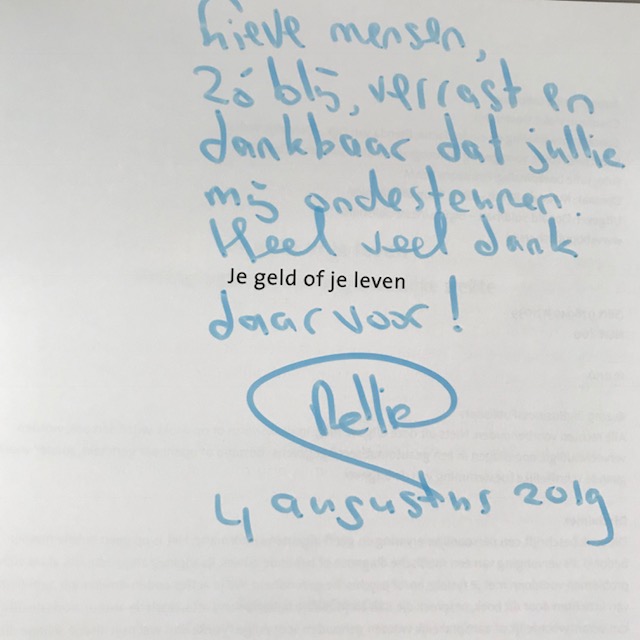 Lieve mensen,
Zó blij, verrast en
dankbaar dat jullie
mij ondesteunen.
Heel veel dank
Je geld of je leven
daarvoor!
Nellie
4 augustus 2019